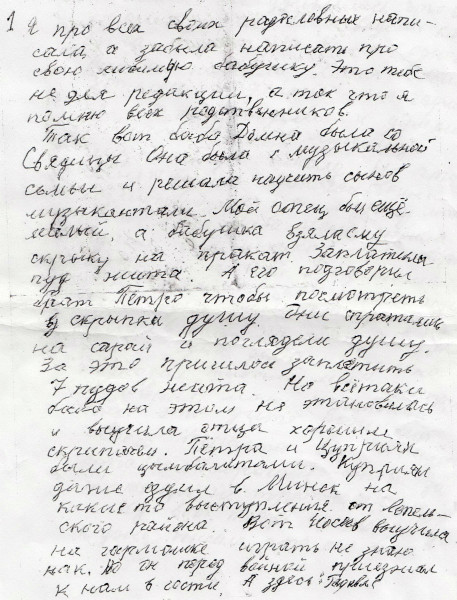 1 Я про всех своих родословных напи-
сала, а забыла написать про
свою любимую бабушку. Это тебе
не для редакции, а так что я
помню всех родственников.
Так вот баба Домна была со
Свядицы Она была с музыкальной
семьи и решила научить сынов
музыкантами. Мой отец был ещё
малый, а бабушка взяла ему
скрыпку на пракат. Заплатила
пуд жита. А его подговорил
брат Пётра чтобы посмотреть
в скрыпки душу. Они спрятались
на сарай и поглядели душу.
За это пришлось заплатить
7 пудов жита. Но всётаки
баба на этом не этановилась
и выучила отца хорошим
скрипачом. Пётра и Цуприян
были цымбалистами. Куприян
даже ездил в Минск на
какие то выступления от Лепель-
ского района. Вот выучила
на гармошке играть не знаю
как. Но он перед войной приезжал
к нам в гости. А здесь